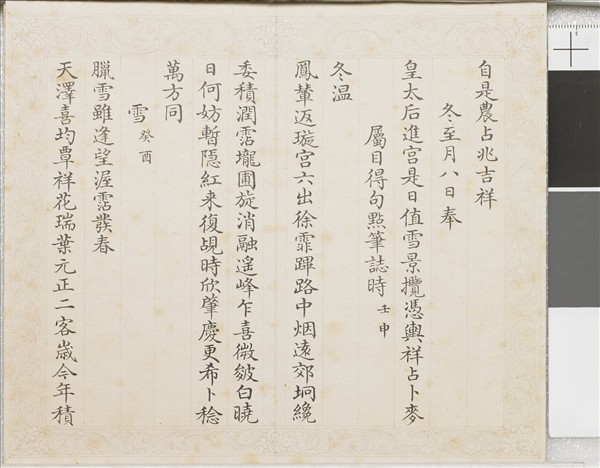 自是農占兆吉祥
冬至月八日奉
皇太后進宮是日值雪景攬憑輿祥占卜麥
屬目得句點筆誌時壬申
冬温
鳳輦返璇宫六出徐霏蹕路中烟遠郊坰纔
委積潤霑壠圃旋消融遥峰乍喜微皴白曉
日何妨暫隱紅来復覘時欣肇慶更希卜稔
萬方同
雪癸酉
臘雪雖逢望渥霑發春
天澤喜均覃祥花瑞葉元正二客歲今年積